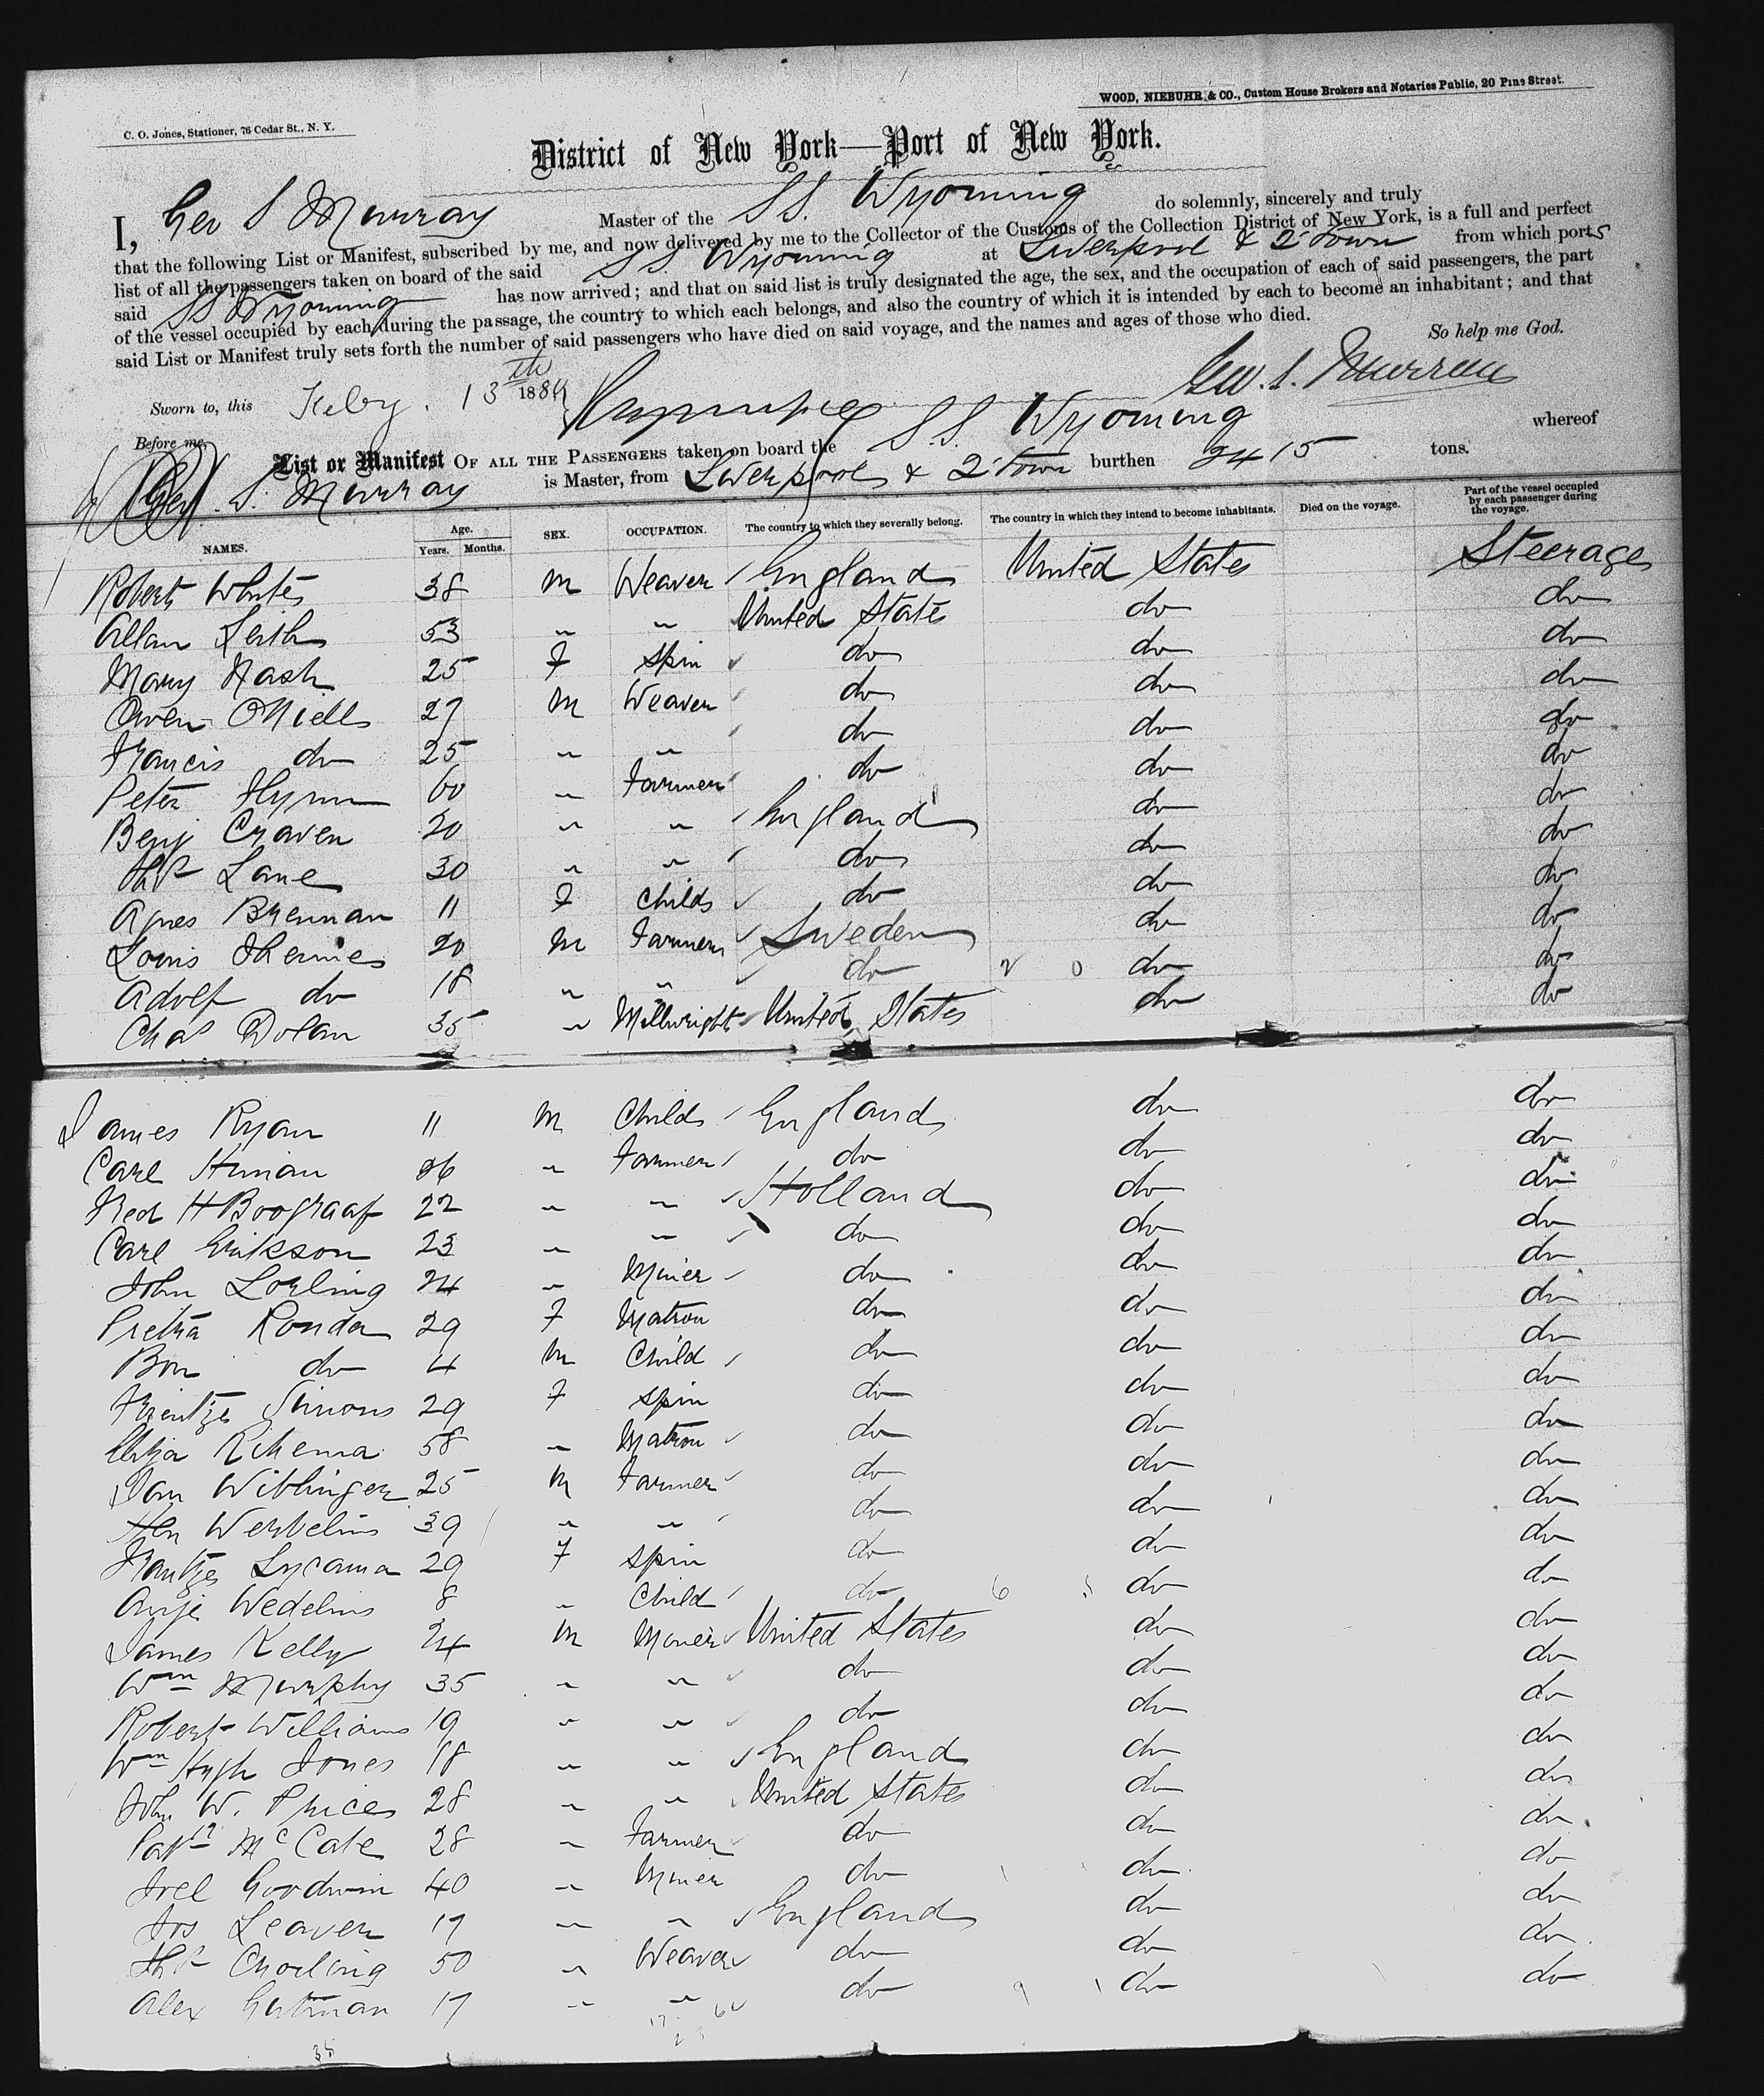 WOOD, NIEBUHR & CO., Custom House Brokers and Notaries Public, 20 Pine Street.
C. O. Jones, Stationer, 76 Cedar St., N. Y.
District of New York—Port of New York.
I, Geo S Murray Master of the SS. Wyoming do solemnly, sincerely and truly
that the following List or Manifest, subscribed by me, and now delivered by me to the Collector of the Customs of the Collection District of New York, is a full and perfect
list of all the passengers taken on board of the said SS. Wyoming at Liverpool & Q Town from which ports
said SS Wyoming has now arrived; and that on said list is truly designated the age, the sex, and the occupation of each of said passengers, the part
of the vessel occupied by each during the passage, the country to which each belongs, and also the country of which it is intended by each to become an inhabitant; and that
said List or Manifest truly sets forth the number of said passengers who have died on said voyage, and the names and ages of those who died.
So help me God.
Sworn to, this Feby. 13th 1884 Geo. S. Murray
Before me,
List or Manifest OF ALL THE PASSENGERS taken on board the S.S. Wyoming whereof
Geo. S. Murray is Master, from Liverpool & Q Town burthen 2415 tons.
NAMES. Age. Years. Months. SEX. OCCUPATION. The country to which they severally belong. The country in which they intend to become inhabitants. Died on the voyage. Part of the vessel occupied by each passenger during the voyage.
Robert White 38 M Weaver England United States Steerage
Allan Leith 53 " " United State do do
Mary Nash 25 F Spin do do do
Owen ONiell 27 M Weaver do do do
Francis do 25 " " do do do
Peter Flynn 60 " Farmer do do do
Benj Craven 20 " " England do do
Thos Lane 30 " " do do do
Agnes Brennan 11 F Child do do do
Louis 20 M Farmer Sweden do do
Adolf do 18 " " do do do
Chas Dolan 35 " Millwright United States do do
James Ryan 11 M Child England do do
Carl 26 " Farmer do do do
Fred H Boograaf 22 " " Holland do do
Carl Erikson 23 " " do do do
John Lorling 24 " Miner do do do
Pretria Ronda 29 F Matron do do do
Bon do 4 M Child do do do
Simons 29 F Spin do do do
Rikema 58 " Matron do do do
Jan Wiblinger 25 M Farmer do do do
Hen 39 " " do do do
Lycama 29 F Spin do do do
Antje Wedelins 8 " Child do do do
James Kelly 24 M Miner United States do do
Wm Murphy 35 " " do do do
Robert Williams 19 " " do do do
Wm Hugh Jones 18 " " England do do
John W. Price 28 " " United States do do
Patk McCabe 28 " Farmer do do do
Joel Goodwin 40 " Miner do do do
Jos Leaver 17 " " England do do
Thos Chorling 50 " Weaver do do do
Alex Gutman 17 " " do do do
35